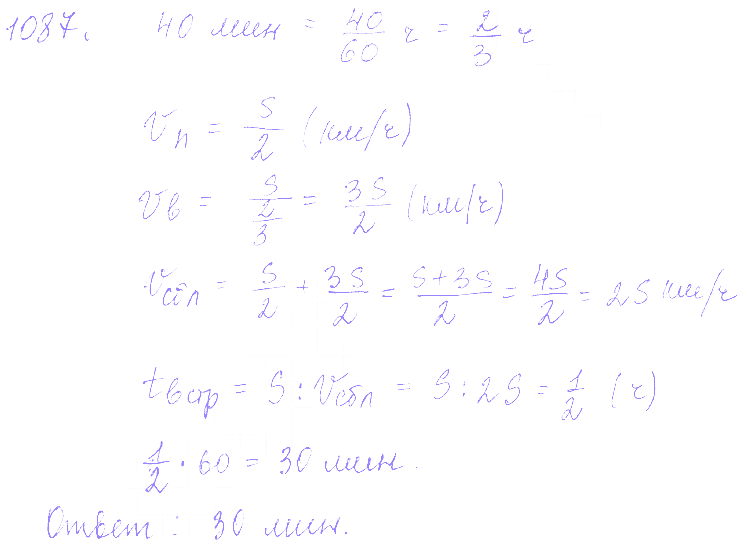 1087. 40 мин = 40/60 ч = 2/3 ч
Vп = S/2 (км/ч)
Vв = S/(2/3) = 3S/2 (км/ч)
Vсбл = S/2 + 3S/2 = (S+3S)/2 = 4S/2 = 2S км/ч
tвстр = S : Vсбл = S : 2S = 1/2 (ч)
1/2 · 60 = 30 мин.
Ответ: 30 мин.